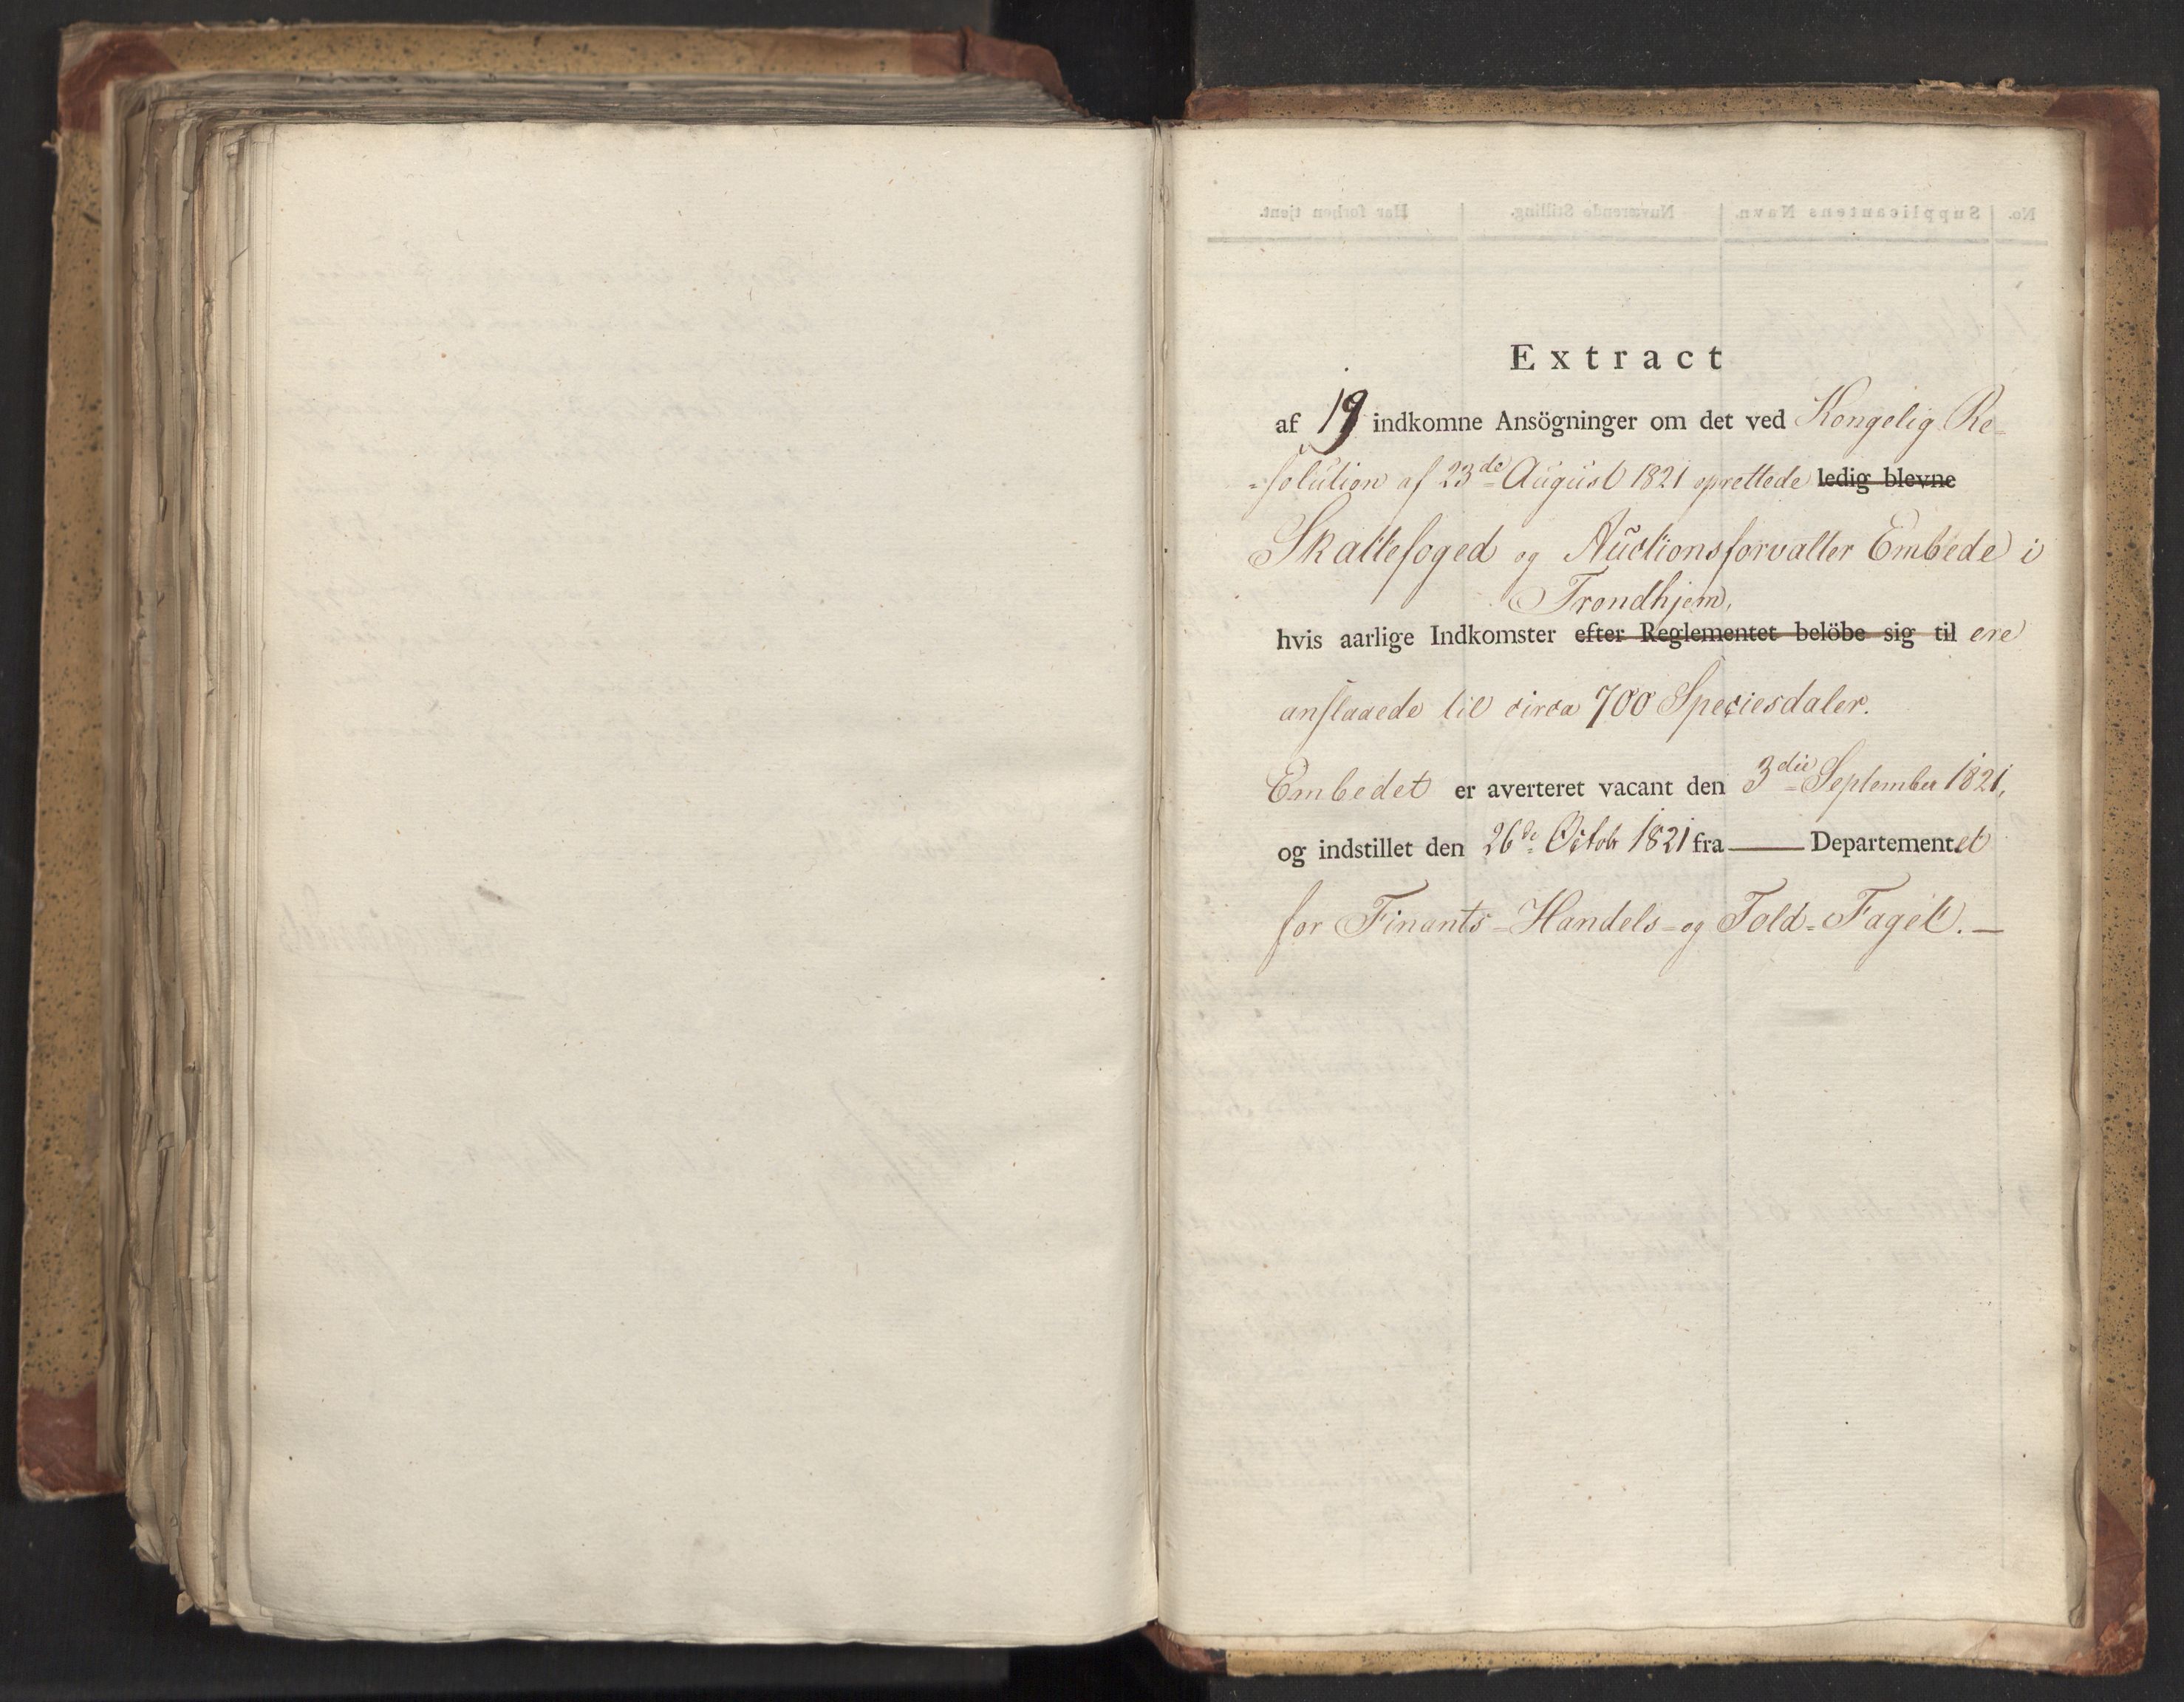 Extract
af 19 indkomne Ansögninger om det ved Kongelig Re-
-solution af 23de August 1821 oprettede ledig blevne
Skattefoged og Auctionsforvalter Embede i
Trondhjem,
hvis aarlige Indkomster efter Reglementet belöbe sig til ere
anslagede til circa 700 Speciesdaler.
Embedet er averteret vacant den 3die September 1821,
og indstillet den 26de Octobr 1821 fra — Departementet
for Finants-Handels-og Told-Faget. —